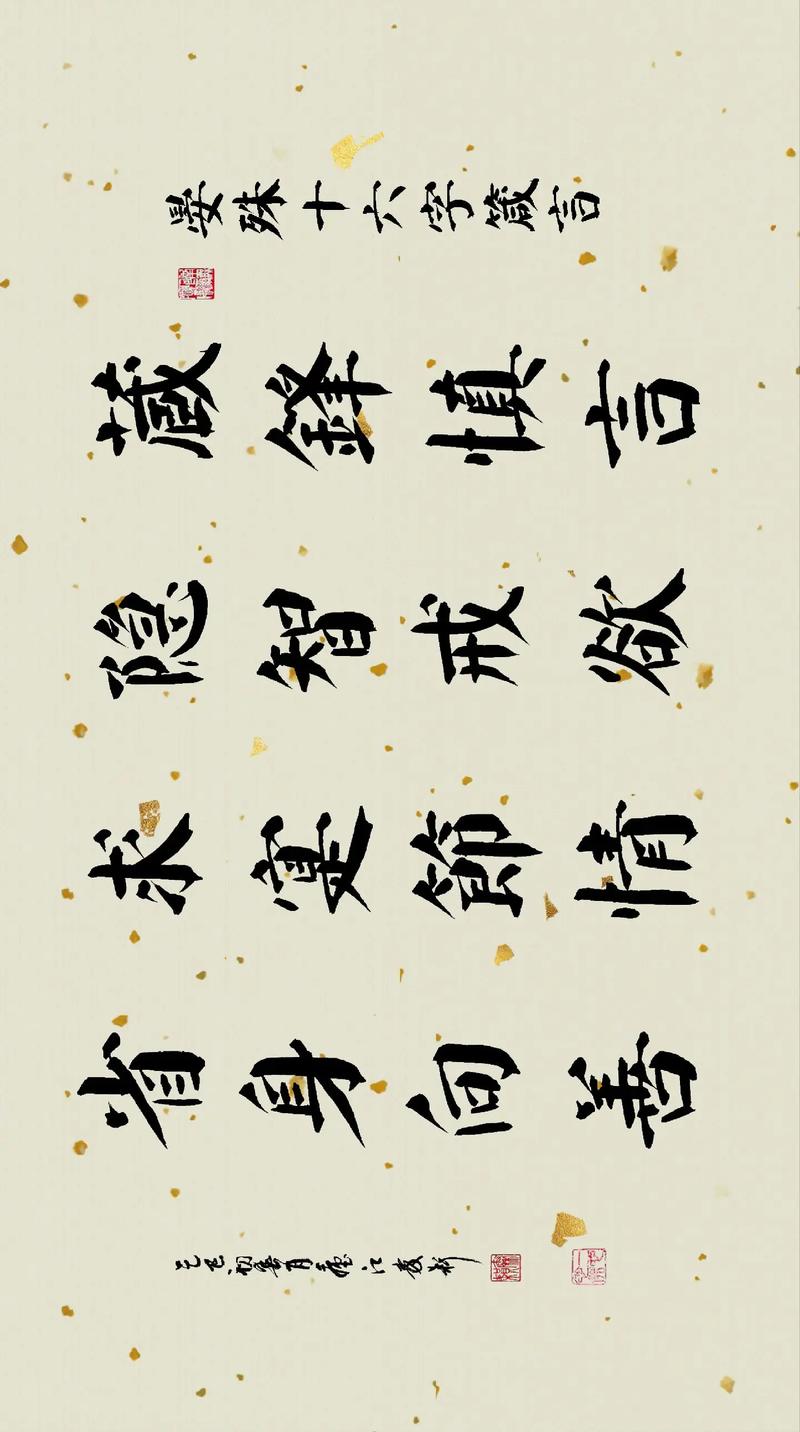 晏殊十六字箴言
藏鋒慎言
隐智戒欲
求寔節情
省身向善
乙巳初春月江